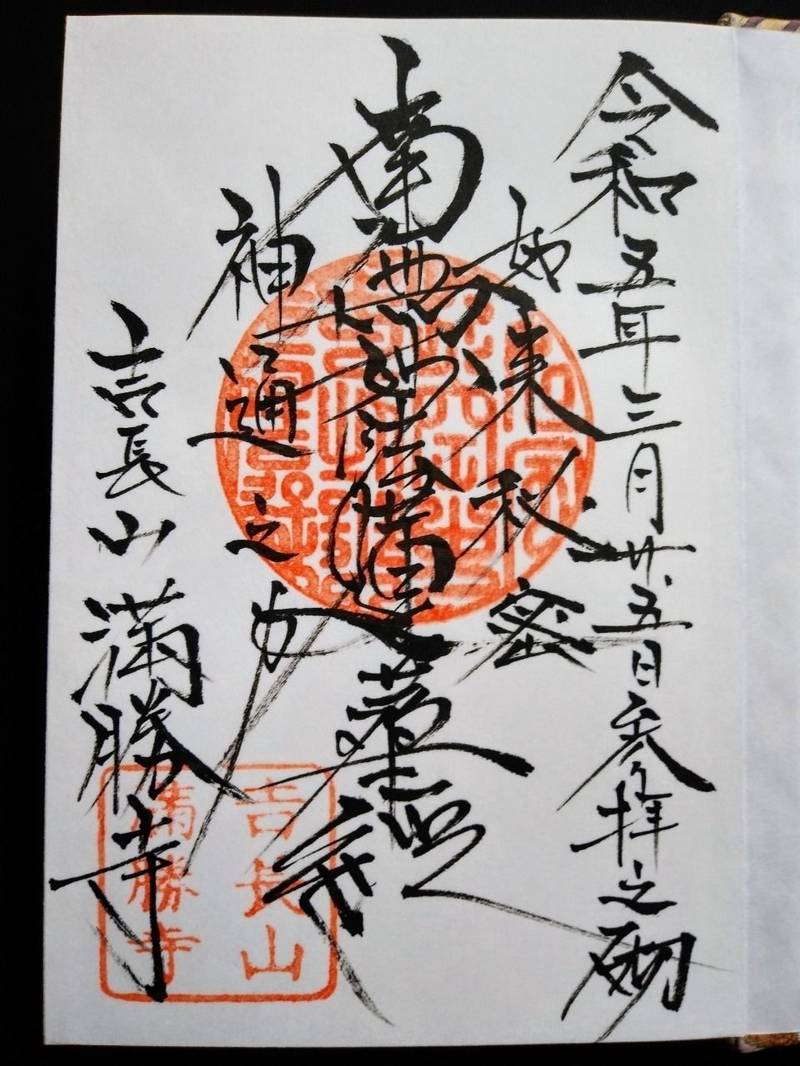 令和五年三月廿五日参拝之砌
如来秘密
南無妙法蓮華経
神通之力
吉長山満勝寺
吉長山
満勝寺